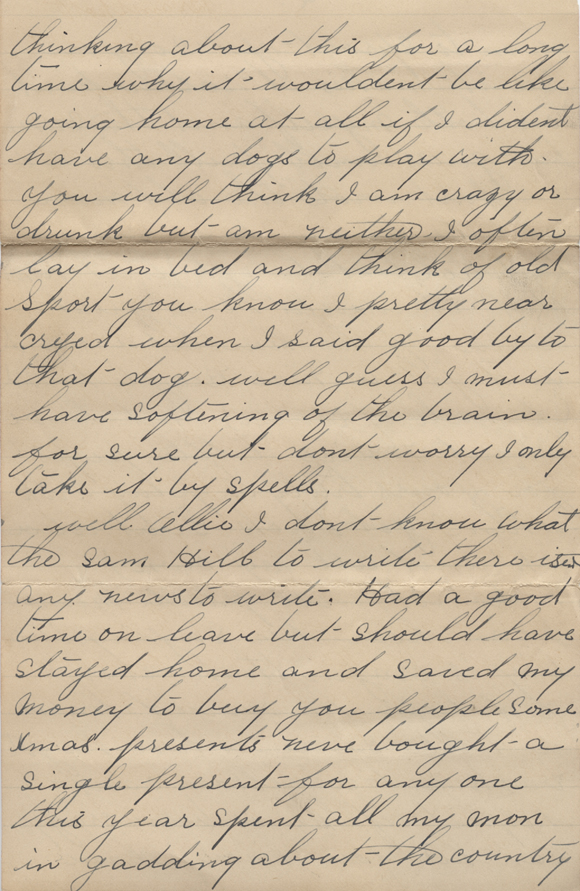 thinking about this for a long
time why it wouldent be like
going home at all if I dident
have any dogs to play with.
you will think I am crazy or
drunk but am neither I often
lay in bed and think of old
Sport you know I pretty near
cryed when I said good by to
that dog. well guess I must
have softening of the brain.
for sure but dont worry I only
take it by spells.
well Ollie I dont know what
the Sam Hill to write there isent
any news to write. Had a good
time on leave but should have
stayed home and saved my
money to buy you people some
Xmas. presents neve bought a
single present for any one
this year spent all my mon
in gadding about the country